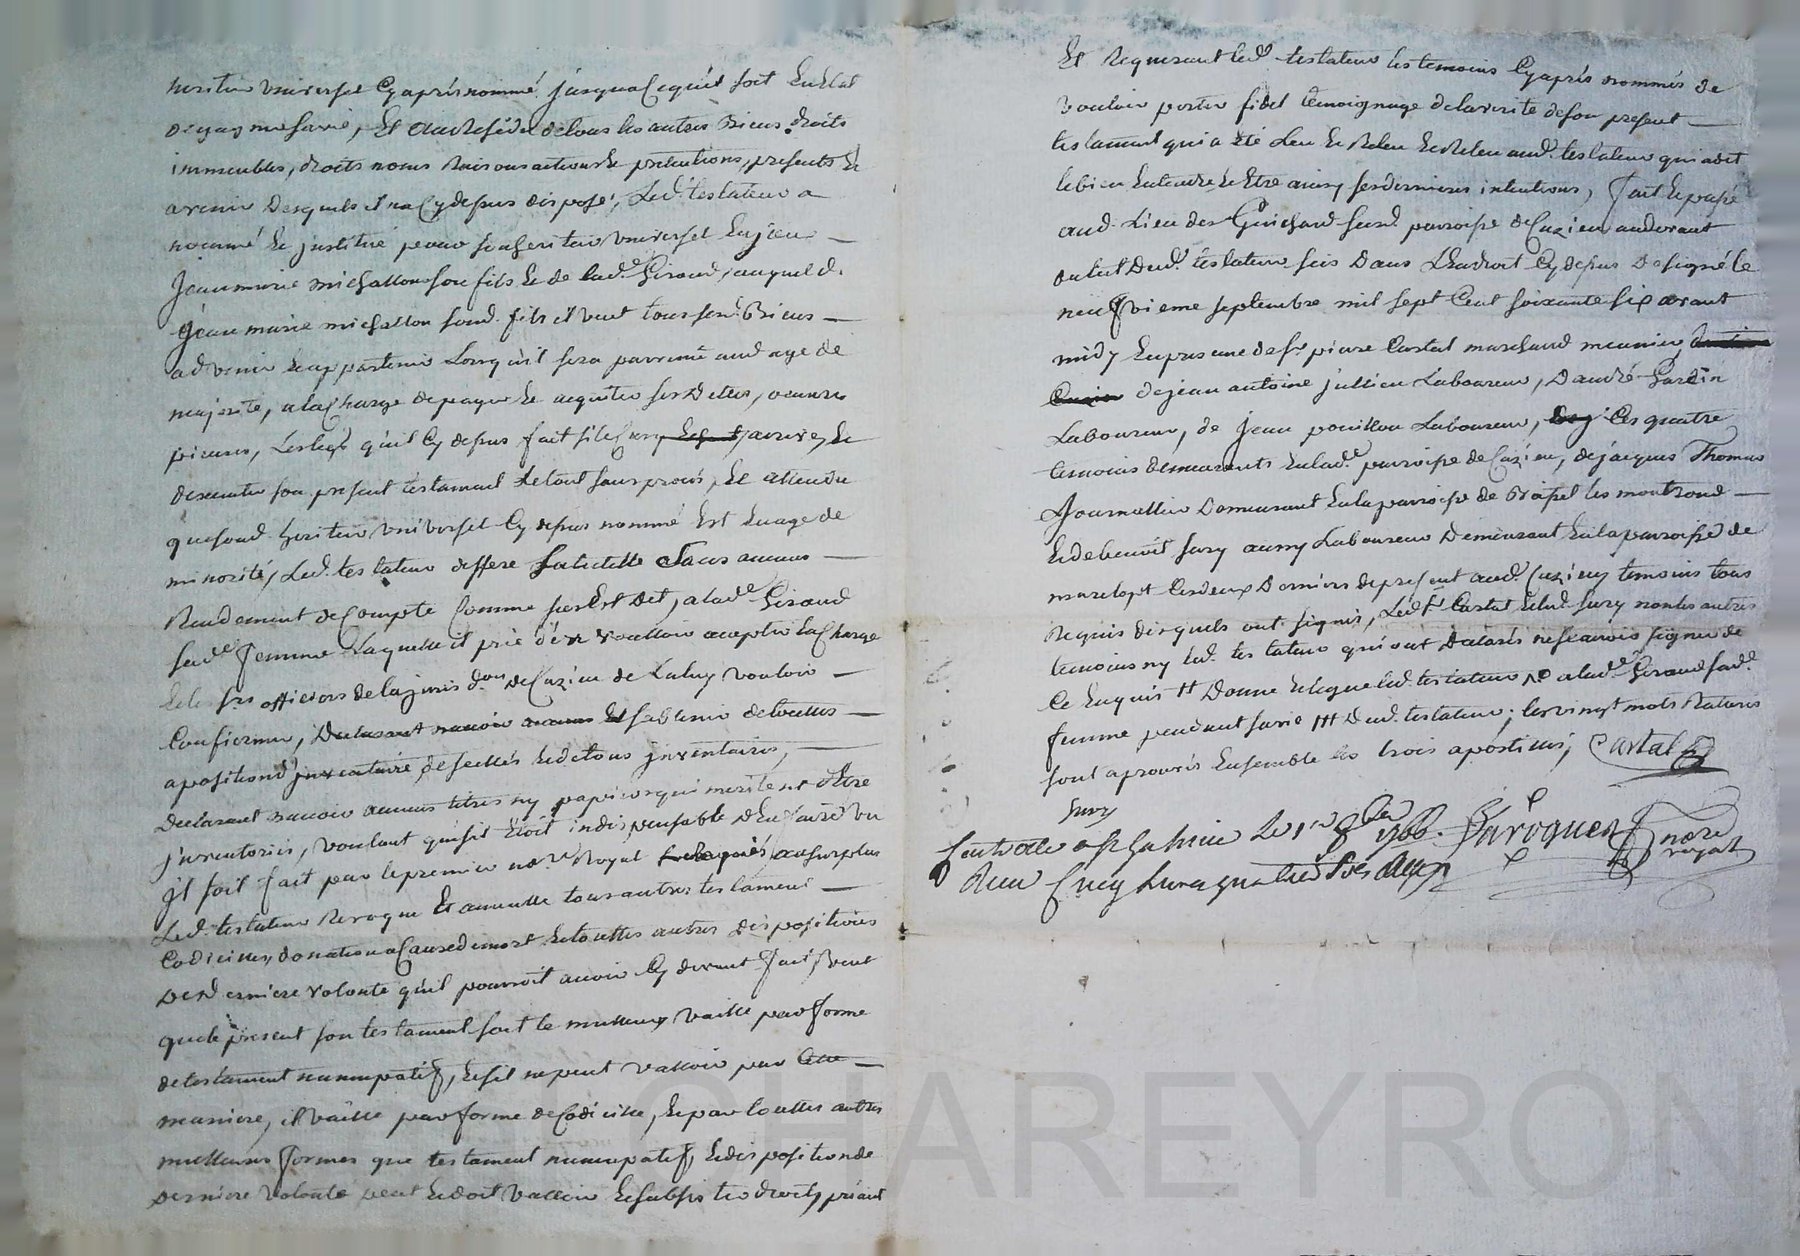 heritier universel Cy apres nommé jusqua cequil soit En Etat
de gagner sa vie, Et au Residu de tous les autres Biens droits
immeubles, droits noms Raisons actions Et pretentions, presents Et
avenir Desquels il na Cy depus disposé, Led. testateur a
nommé Et jnstitué pour son heritier universel Enjeu
Jean marie michallon son fils Et de lad.e Giraud, auquel d.
jean marie michallon sond. fils il veut tous sesd. Biens
advenir Et appartenir Lorsquil sera parvenu aud age de
majorité, a la Charge de payer Et acquiter ses Dettes, oeuvres
pieuses, Les legs quil Cy depus fait si le Cas y arrive, Et
dexecuter son present testament Le tout sans procés, Et attendu
que sond. heritier universel Cy depus nommé Est En age de
minorité, Led. testateur deffere Sans aucun
Rendement de Compte Comme sus Est Dit, a lad.e Giraud
sad.e femme Laquelle il prie d'en voulloir accepter la Charge
Et les srs officiers de la juris d.on De Cuzieu de Lahuy vouloir
Confirmer, Declarant navoir aucuns Et sabtenir de touttes
apositions jnventaire de scellés Et de tous jnventaires,
Declarant navoir aucuns titres ny papiers qui meritent dEtre
jnventoriés, voulant que sil Etoit indispensable d'En faire un
jl soit fait par le premier no.re Royal au surplus
Led. testateur Revoque Et annulle tous autres testament
Codicilles, donation a Cause de mort Et touttes autres dispositions
De Derniere volonté quil pourroit avoir Cy devant fait, veut
que le present son testament soit le meilleur, vaille par forme
de testament nuncupatif, Et sil ne peut valloir par Cette
maniere, il vaille par forme de Codicille, Et par touttes autres
meilleures formes que testament nuncupatif, Et disposition de
Derniere volonté peut Et doit valloir Et subsister de droit, priant
Et Requerant led. testateur les temoins Cy aprés nommés de
vouloir porter fidel temoignage de la verité de son present
testament qui a été Leu Et Releu Et Releu aud. testateur qui a dit
le bien Entendre Et Etre ainsy ses dernieres intentions, fait Et passé
aud. Lieu des Guichard susd. parroisse de Cuzieu audevant
dud. testateur sis Dans L'Endroit Cy depus Designé le
neufvieme septembre mil sept Cent soixante six avant
midy En presence de s.r pierre Cartal marchand meunier,
de jean antoine jullien Laboureur, D'andré Gardin
Laboureur, de jean pouillon Laboureur, Les quatre
temoins demeurants En lad.e parroisse de Cuzieu, de jacques Thomas
Journallier Demeurant En la parroisse de Craipel les montrond
Et de benoit Jury aussy Laboureur Demeurant En la parroisse de
marclopt Les deux Derniers de present aud. Cuzieu temoins tous
Requis desquels ont signés, Led. s.r Cartal Et led. Jury non les autres
temoins ny led. testateur qui ont Declarés ne scavoir signer de
Ce Enquis # Donne Et legue led. testateur a lad.e Giraud sad.e
femme pendant sa vie ### Dud. testateur; les vingt mots Raturés
sont aprouvés Ensemble les trois apostilles, Cartal
Jury
Controllé a St Galmier Le 1er 8bre 1766. Baroquer no.re
royal
Receu Cinq livres quatre sols